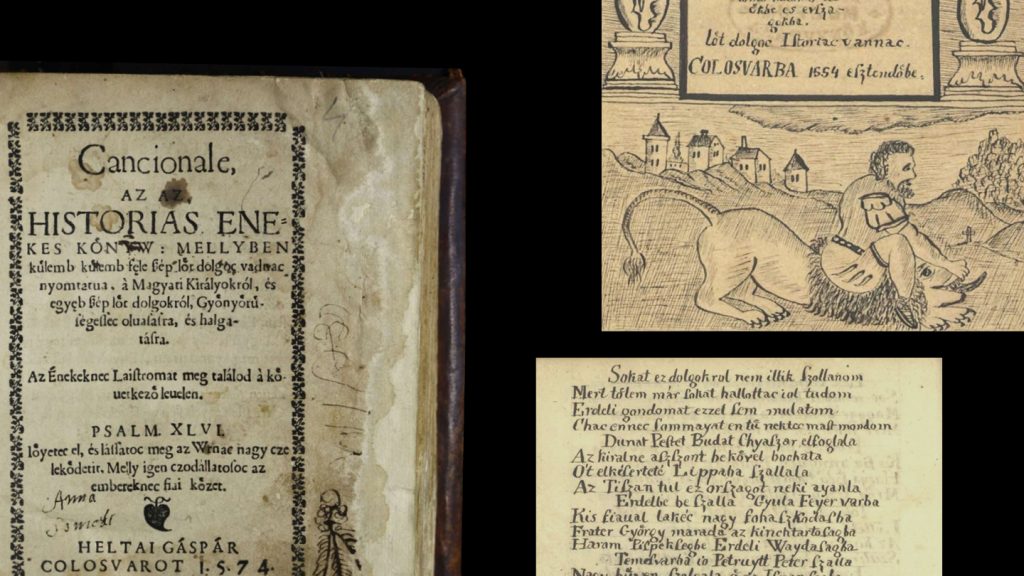 Cancionale,
AZ AZ,
HISTORIAS ENE-
KES KŐNYW: MELLYBEN
kűlemb kűlemb fęle ßép lőt dolgoc vadnac
nyomtatua, à Magyari Királyokról, és
egyéb ßép lőt dolgokról, Gyönyőrű-
segessec oluasasra, és halga-
tásra.
Az Énekeknec Laistromat meg találod à kő-
uetkező leuelen.
PSALM. XLVI.
Iőyetec el, és lássatoc meg az Wrnac nagy cze
lekődetit. Melly igen czodállatosoc az
embereknec fiai kőzet.
Anna
HELTAI GÁSPÁR
COLOSVAROT 1.5.74.
őkbe es orsza-
gokba.
lőt dolgoc Istoriac vannac.
COLOSVARBA 1554 esztendőbe.
Sokat ez dolgokrol nem illik Szollanom
Mert tőlem már sokat hallottac iol tudom
Erdeli gondomat ezzel sem mulatom
Chac ennec sommayat en tű nektec mast mondom
Dunat Pestet Budat Chyaszar elfoglala
Az kiralne aszszont be kőyel bochata
Ot elkesertete Lippaba Szallala
Az Tiszan tul ez orszagot neki ayanla
Erdelbe be szalla Gyula Feyer varba
Kis fiaual lakéc nagy fohaszkodasba
Frater György marada az kinchtartosagba
Haram Pispeksegbe Erdeli Waydasagba
Temesvarba io Petruytt Peter Szalla